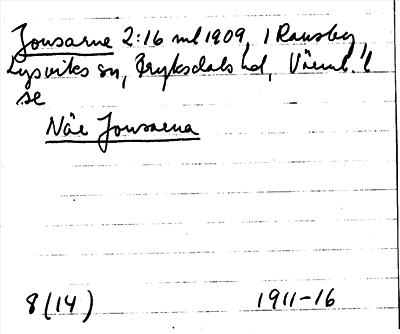 Jonsarne 2:16 ml 1909, 1 Ransby,
Lysviks sn, Fryksdals hd, Värml. l
se
När Jonsarna
8 (14) 1911-16